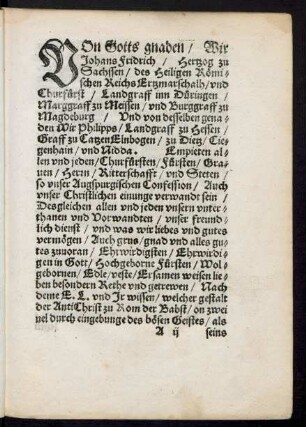 VOn Gotts gnaden / Wir
Johans Fridrich / Hertzog zu
Sachssen / des Heiligen Römi-
schen Reichs Ertzmarschalh / vnd
Churfürst / Landgraff inn Düringen /
Marggraff zu Meissen / vnd Burggraff zu
Magdeburg / Vnd von desselben gena-
den Wir Philipps / Landgraff zu Hessen /
Graff zu CatzenElnbogen / zu Dietz / Cie-
genhain / vnd Nidda. Empieten al-
len vnd jeden / Churfürsten / Fürsten / Gra-
uen / Hern / Ritterschafft / vnd Steten /
so vnser Augspurgischen Confession / Auch
vnser Christlichen einunge verwandt sein /
Desgleichen allen vnd jeden vnsern vnter-
thanen vnd Vorwandten / vnser freund-
lich dienst / vnd was wir liebs vnd gutes
vermögen / Auch grus / gnad vnd alles gu-
tes zuuoran / Ehrwirdigsten / Ehrwirdi-
gen in Gott / Hochgeborne Fürsten / Wol-
gebornen / Edle / veste / Ersamen weisen lie-
ben besondern Rethe vnd getrewen / Nach
deme E. L. vnd Ir wissen / welcher gestalt
der AntiChrist zu Rom der Babst / on zwei
uel durch eingebunge des bösen Geistes / als
A ij seins